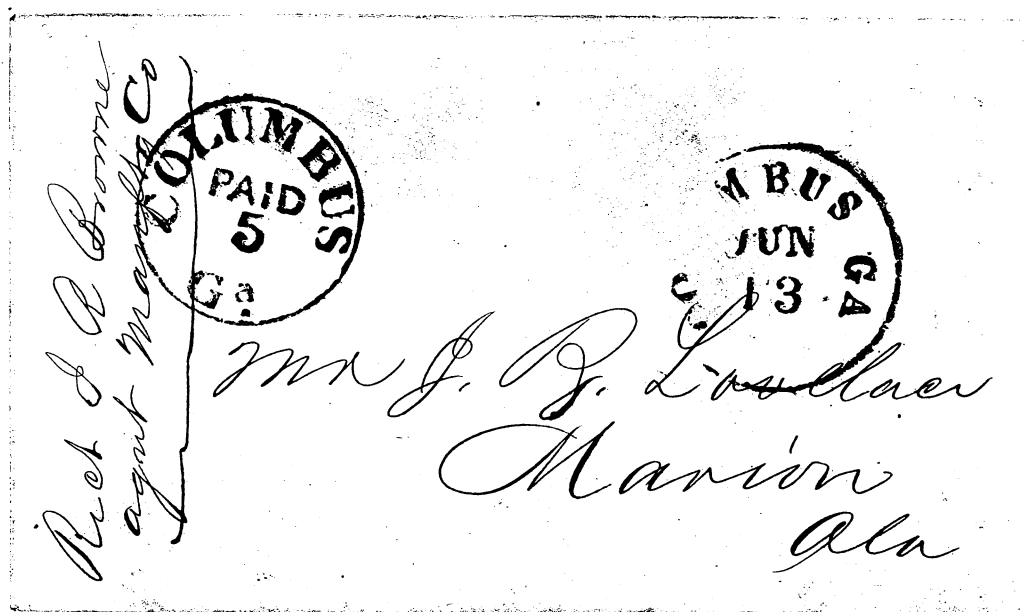 Rect J R Boone
agent Manfg Co
COLUMBUS
PAID
5
Ga.
MBUS GA
JUN
13
Mr J. B. Lovelace
Marion
Ala